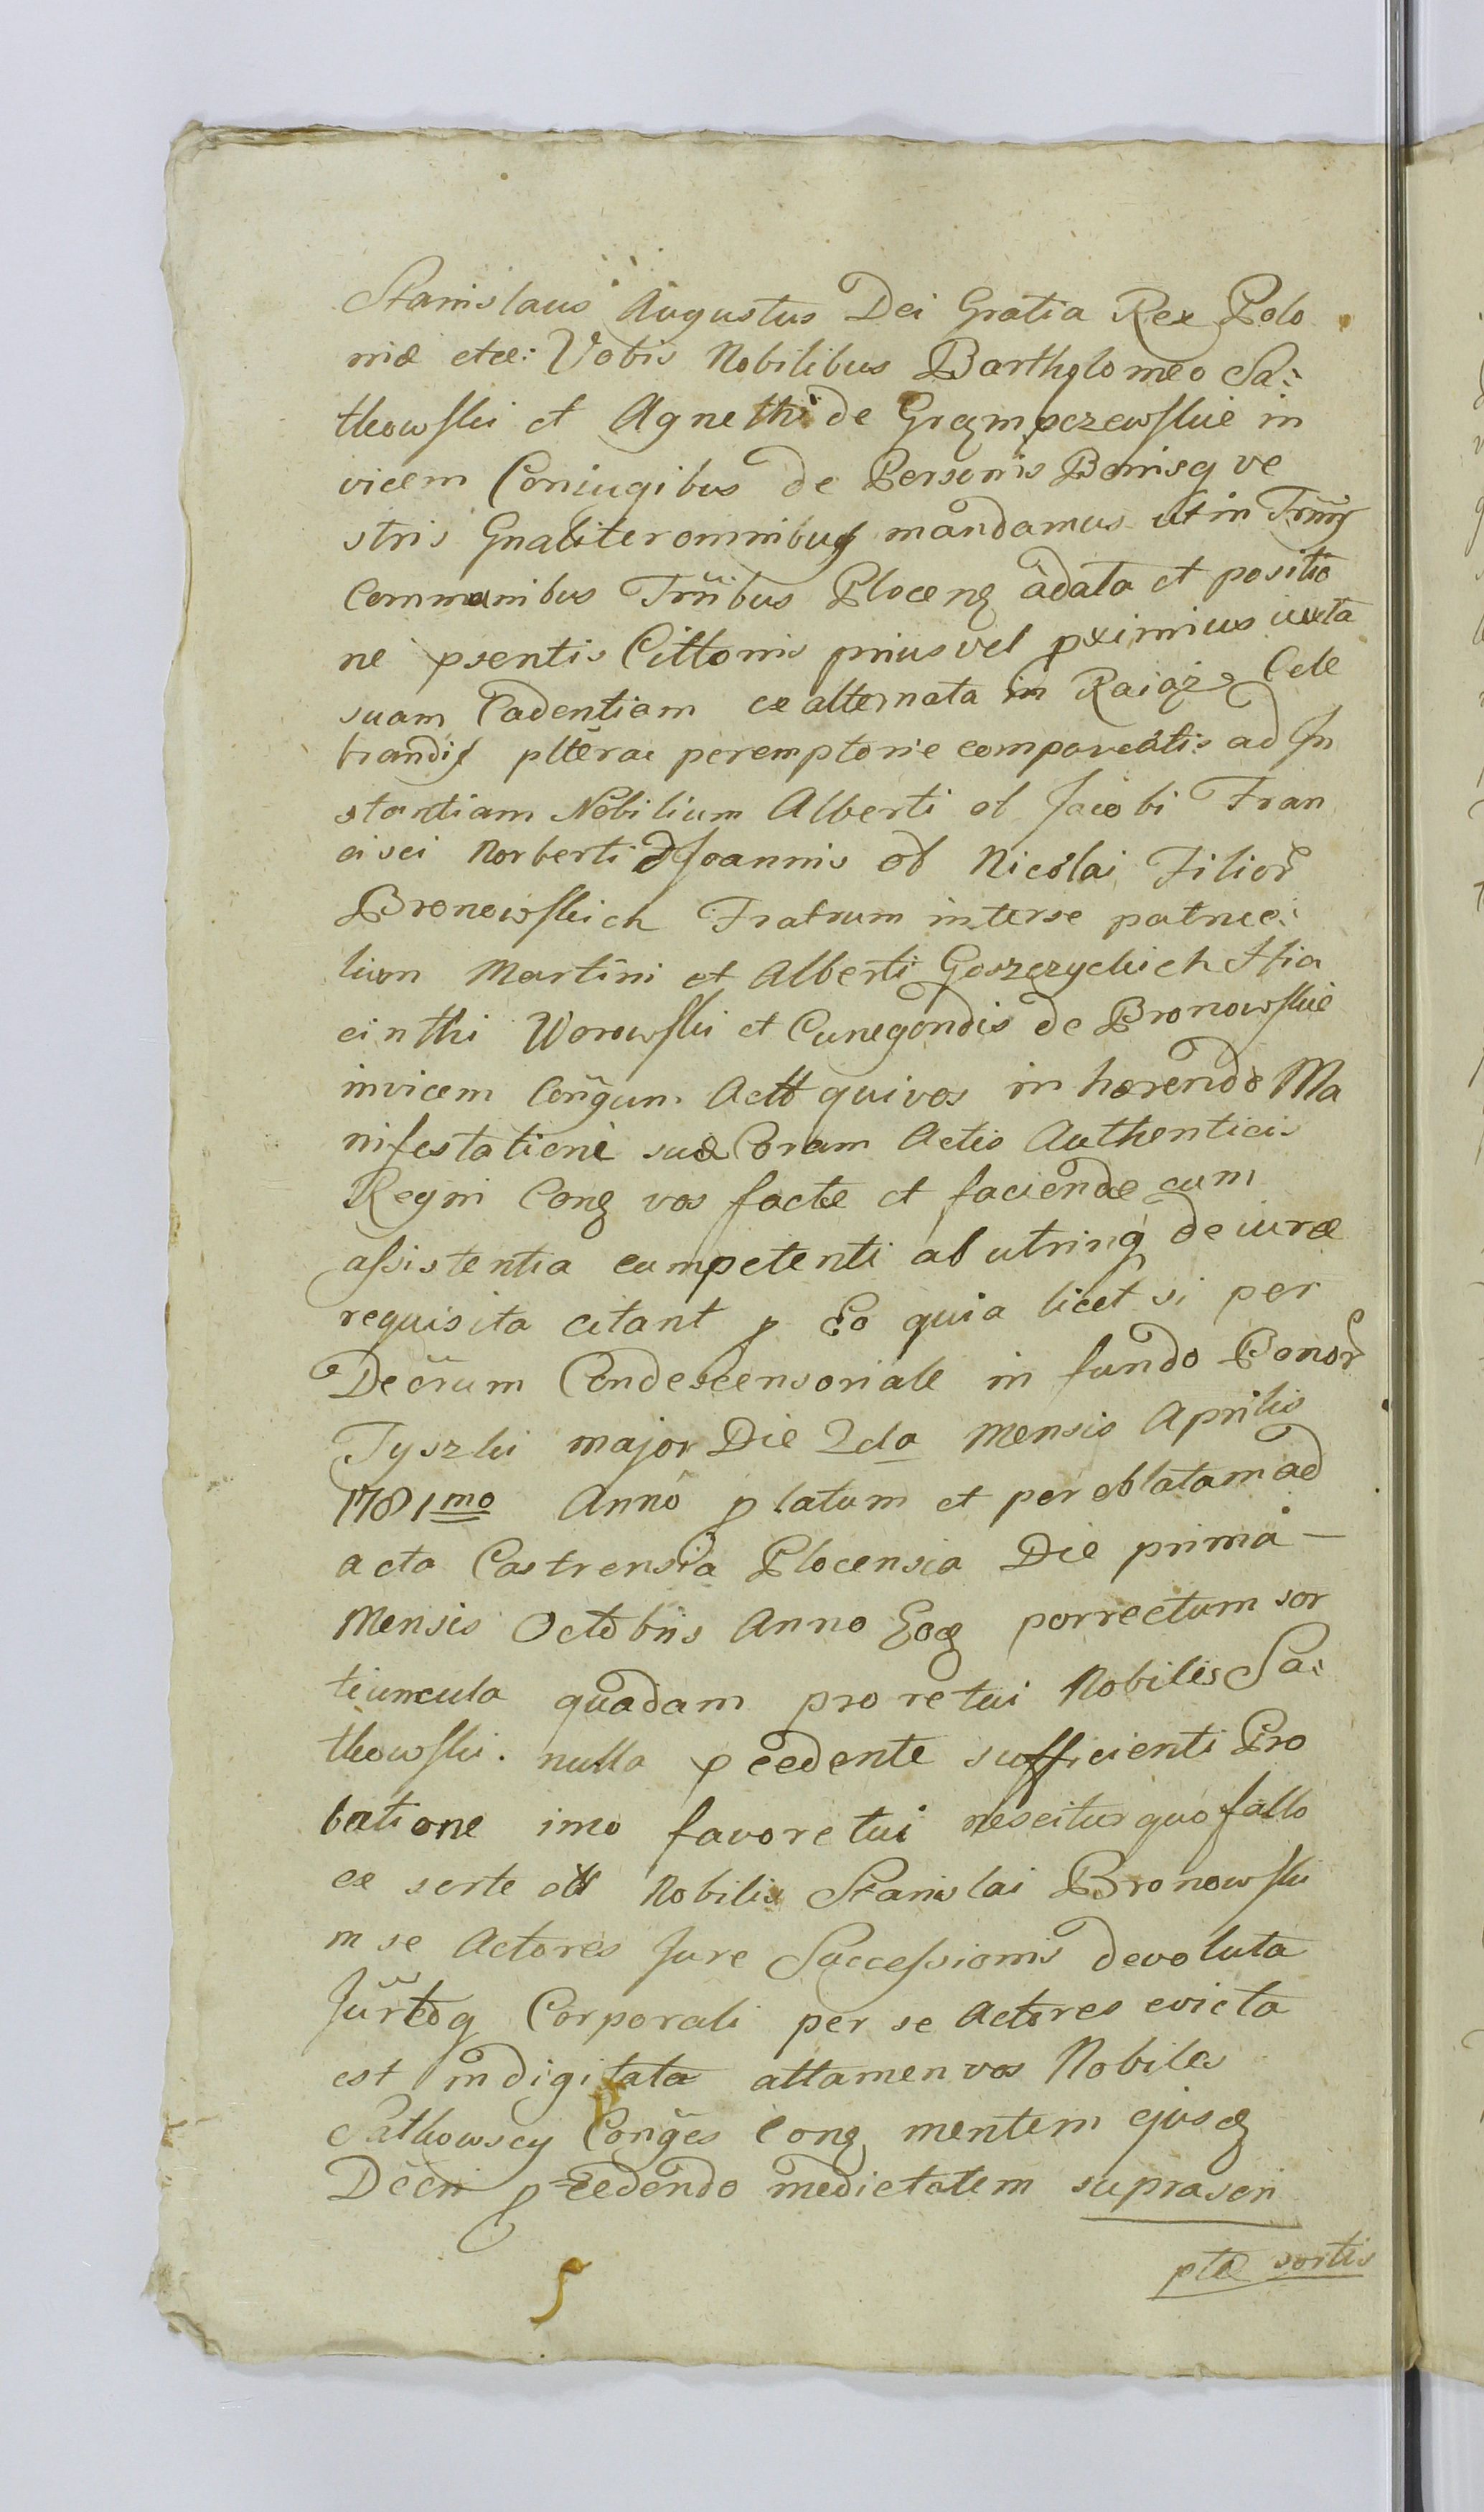 Stanislaus Augustus Dei Gratia Rex Polo
niæ etce: Vobis Nobilibus Bartholomeo Sa:
tkowski et Agnethi de Grempczewskie in
vicem Coniugibus de Personis Bonisq ve
stris Gnaliter omnibus mandamus ut in Trmis
Communibus Trribus Plocens adata et positio
ne psentis Cittonis prius vel pximius iuxta
suam Cadentiam ex alternata in Raiąż Cele
brandis pltèrae peremptorie compareatis ad In
stantiam Nobilium Alberti ol Jacobi Fran
cisci Norberti & Joannis ol Nicolai Filior
Bronowskich Fratrum interse patrue:
lium Martini et Alberti Goszczyckich Hia
cinthi Worowski et Cunegondis de Bronowskie
invicem Cońgum Actt qui vos in hærendo Ma
nifestationi suæ Coram Actis Authenticis
Regni Conq vos factæ et faciendæ cum
assistentia competenti ab utrinq de iuræ
requisita citant p Eo quia licet si per
Decrum Condescensoriale in fundo Bonor
Tyszki major Die 2da Mensis Aprilis
1781mo Anno p latum et per oblatam ad
acta Castrensia Plocensia Die prima —
Mensis Octobris Anno Eoq porrectum sor
tiuncula quadam pro re tui Nobilis Sa:
tkowski. nulla pcedente sufficienti Pro
batione imo favore tui nescitur quo fallo
ex sorte ol Nobilis Stanislai Bronowski
in se Actores Jure Successionis devoluta
Jurtoq Corporali per se Actores evicta
est indigitata attamen vos Nobiles
Satkowscy Conges Conq mentem ejusq
Decri pcedendo medietatem suprascri
ptæ sortis